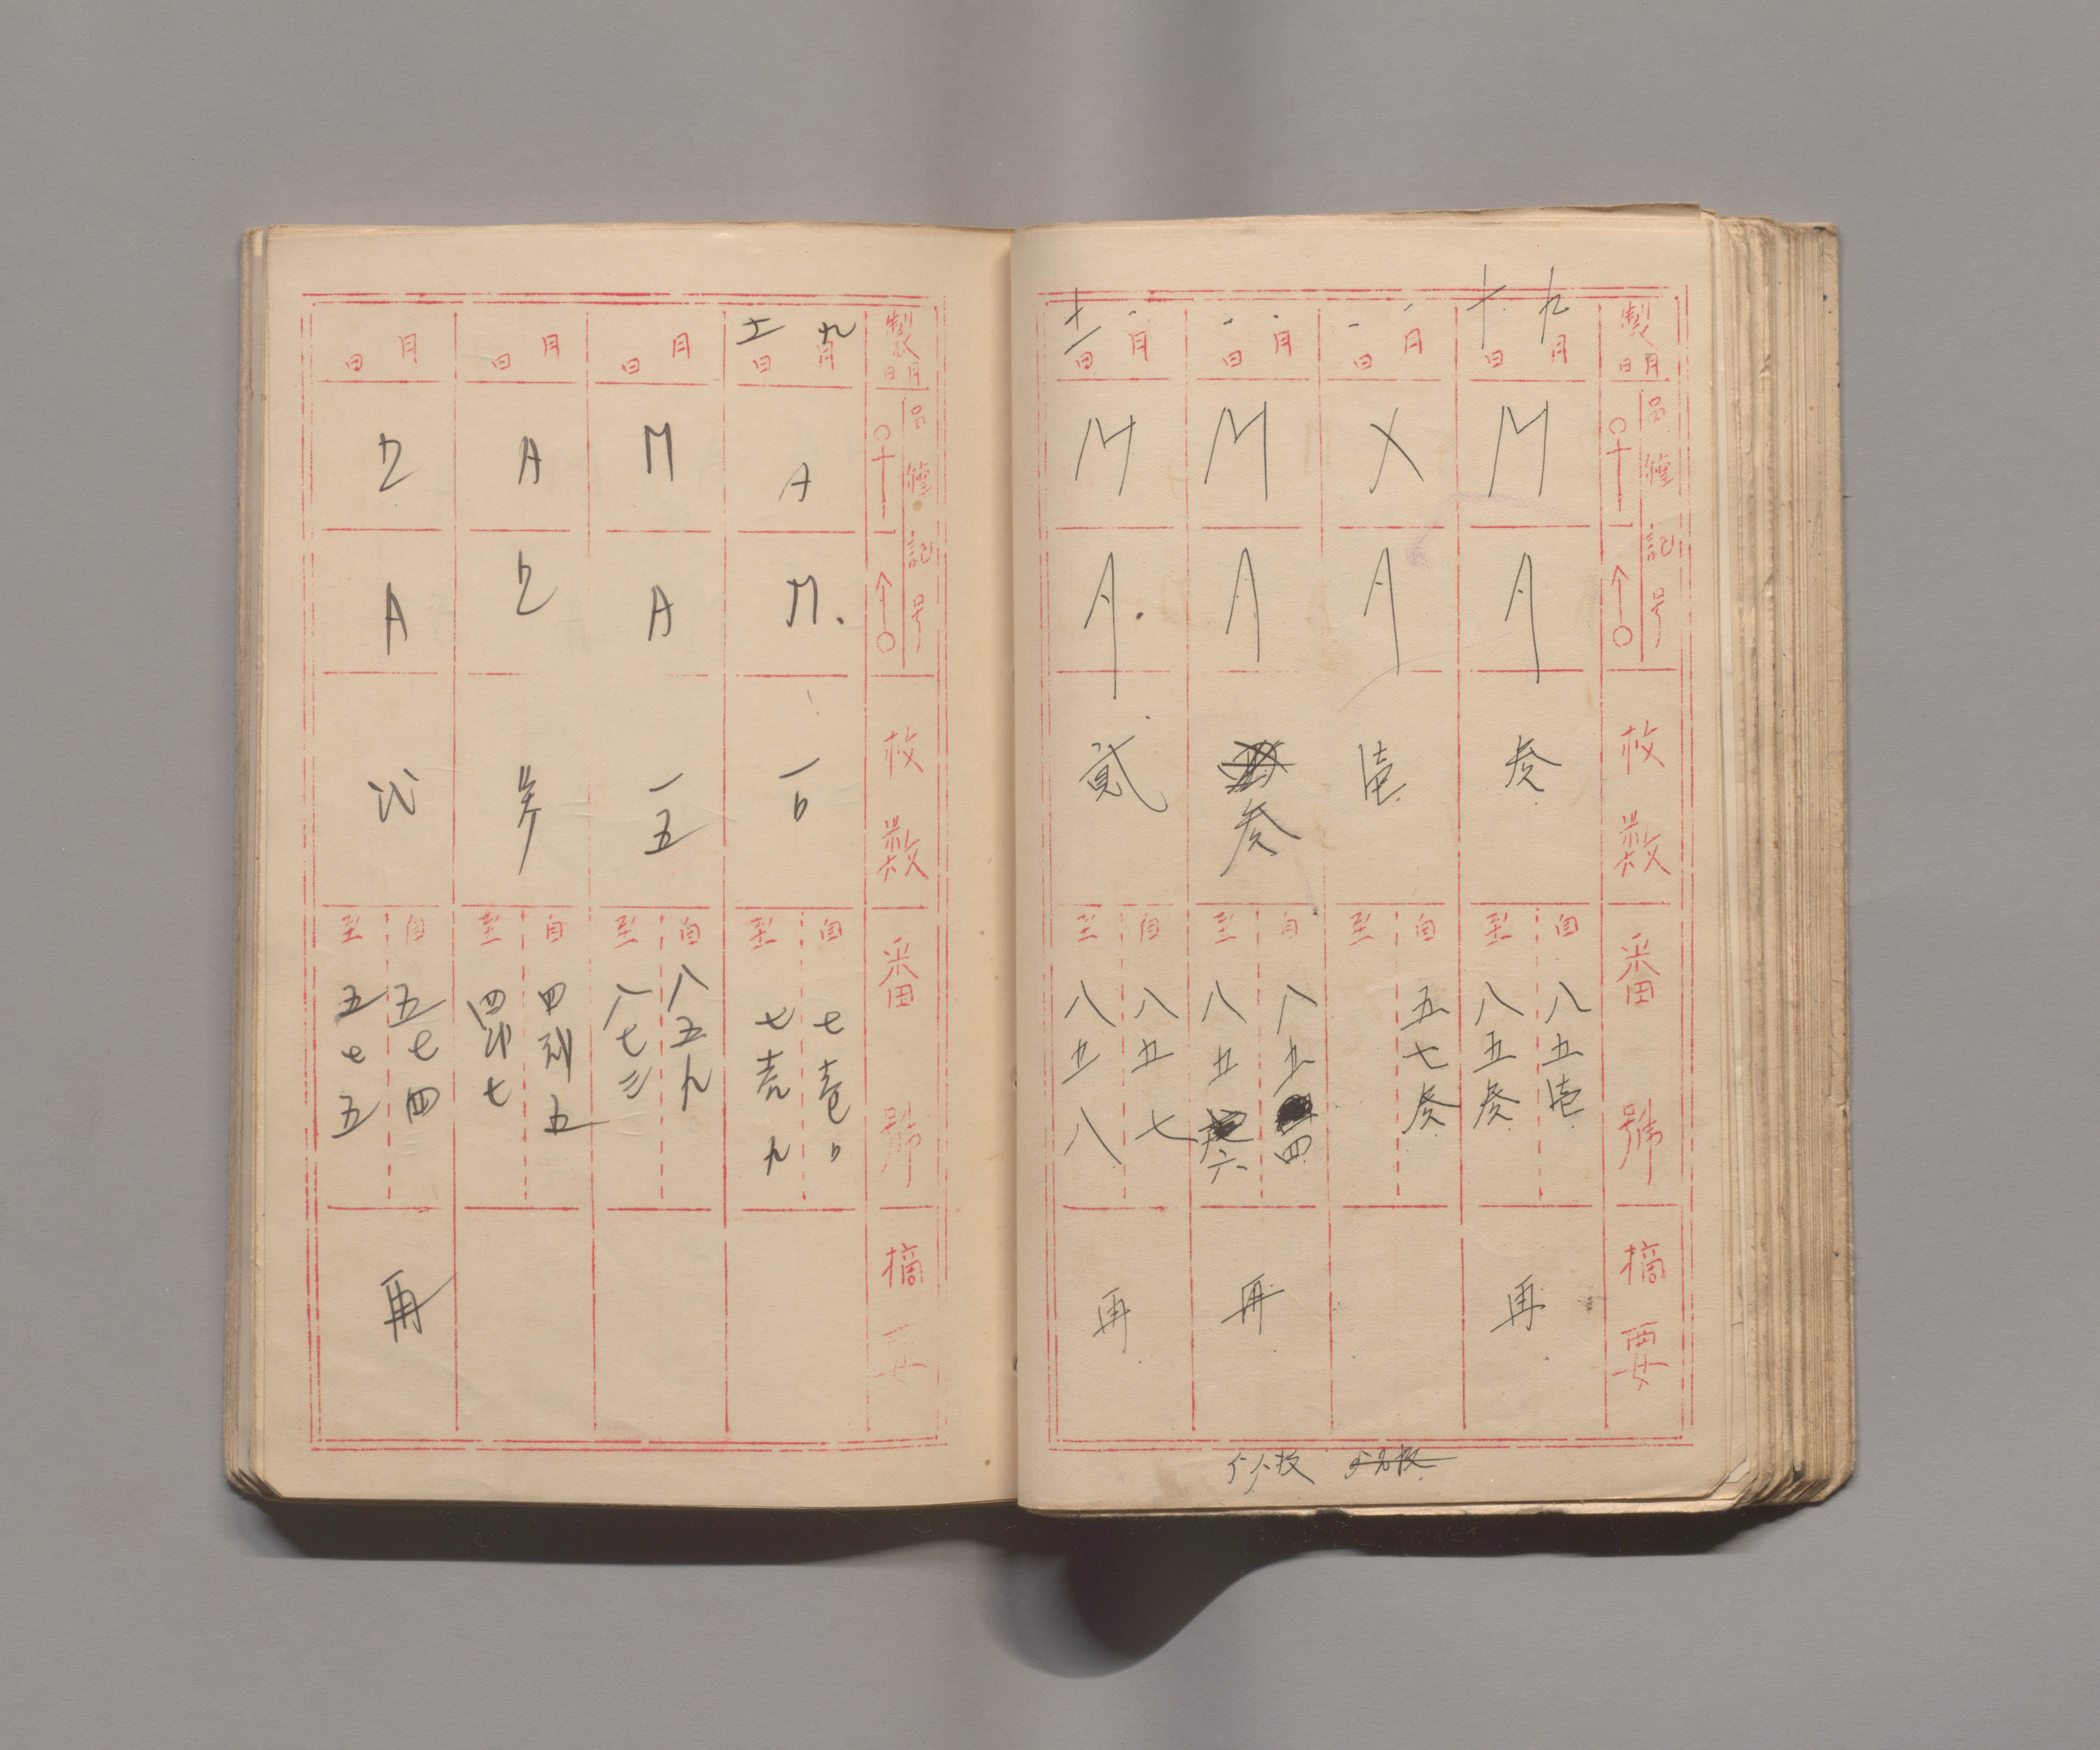 製月日
品種記号
枚数
番號
摘要
九月十日
M
A
参
自八五壱
至八五参
再
月日
X
A
壱
自五七参
至
月日
M
A
参
自八五四
至八五六
再
月十一日
M
A.
貳
自八五七
至八五八
再
製月日
品種記号
枚数
番號
摘要
九月十一日
A
M.
一〇
自七壱〇
至七壱九
月日
M
A
一五
自八五九
至八七三
月日
A
参
自四五
至四七
月日
A
自五七四
至五七五
再